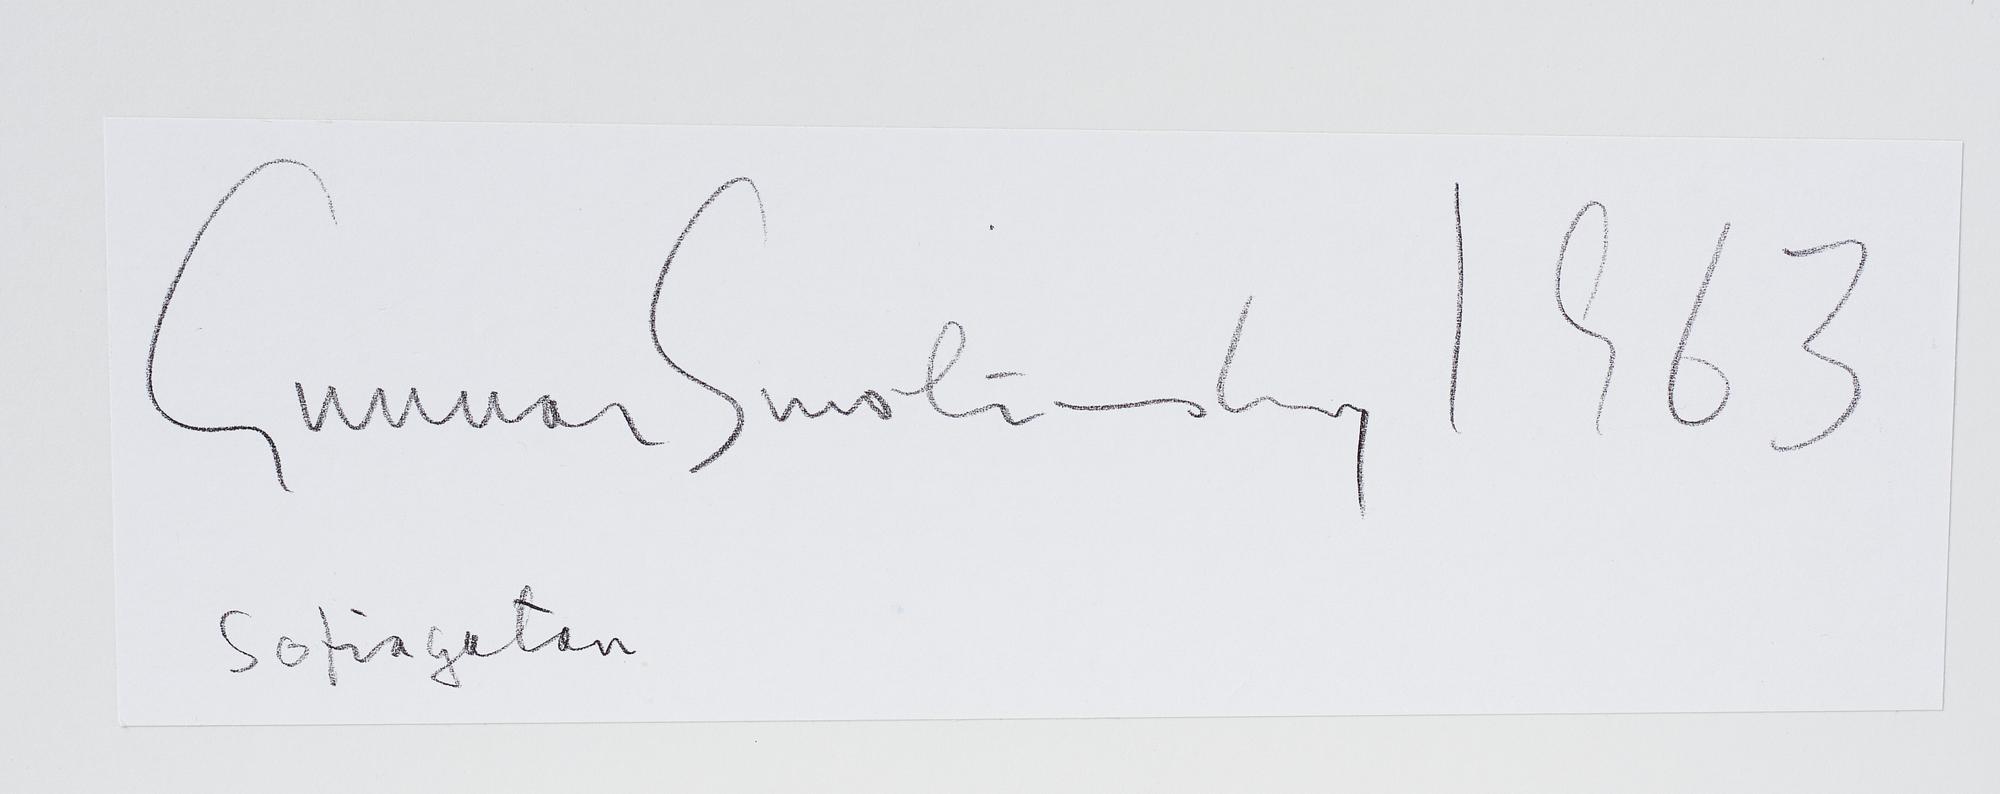 Gunnar Smoliansky 1963
Sofiagatan